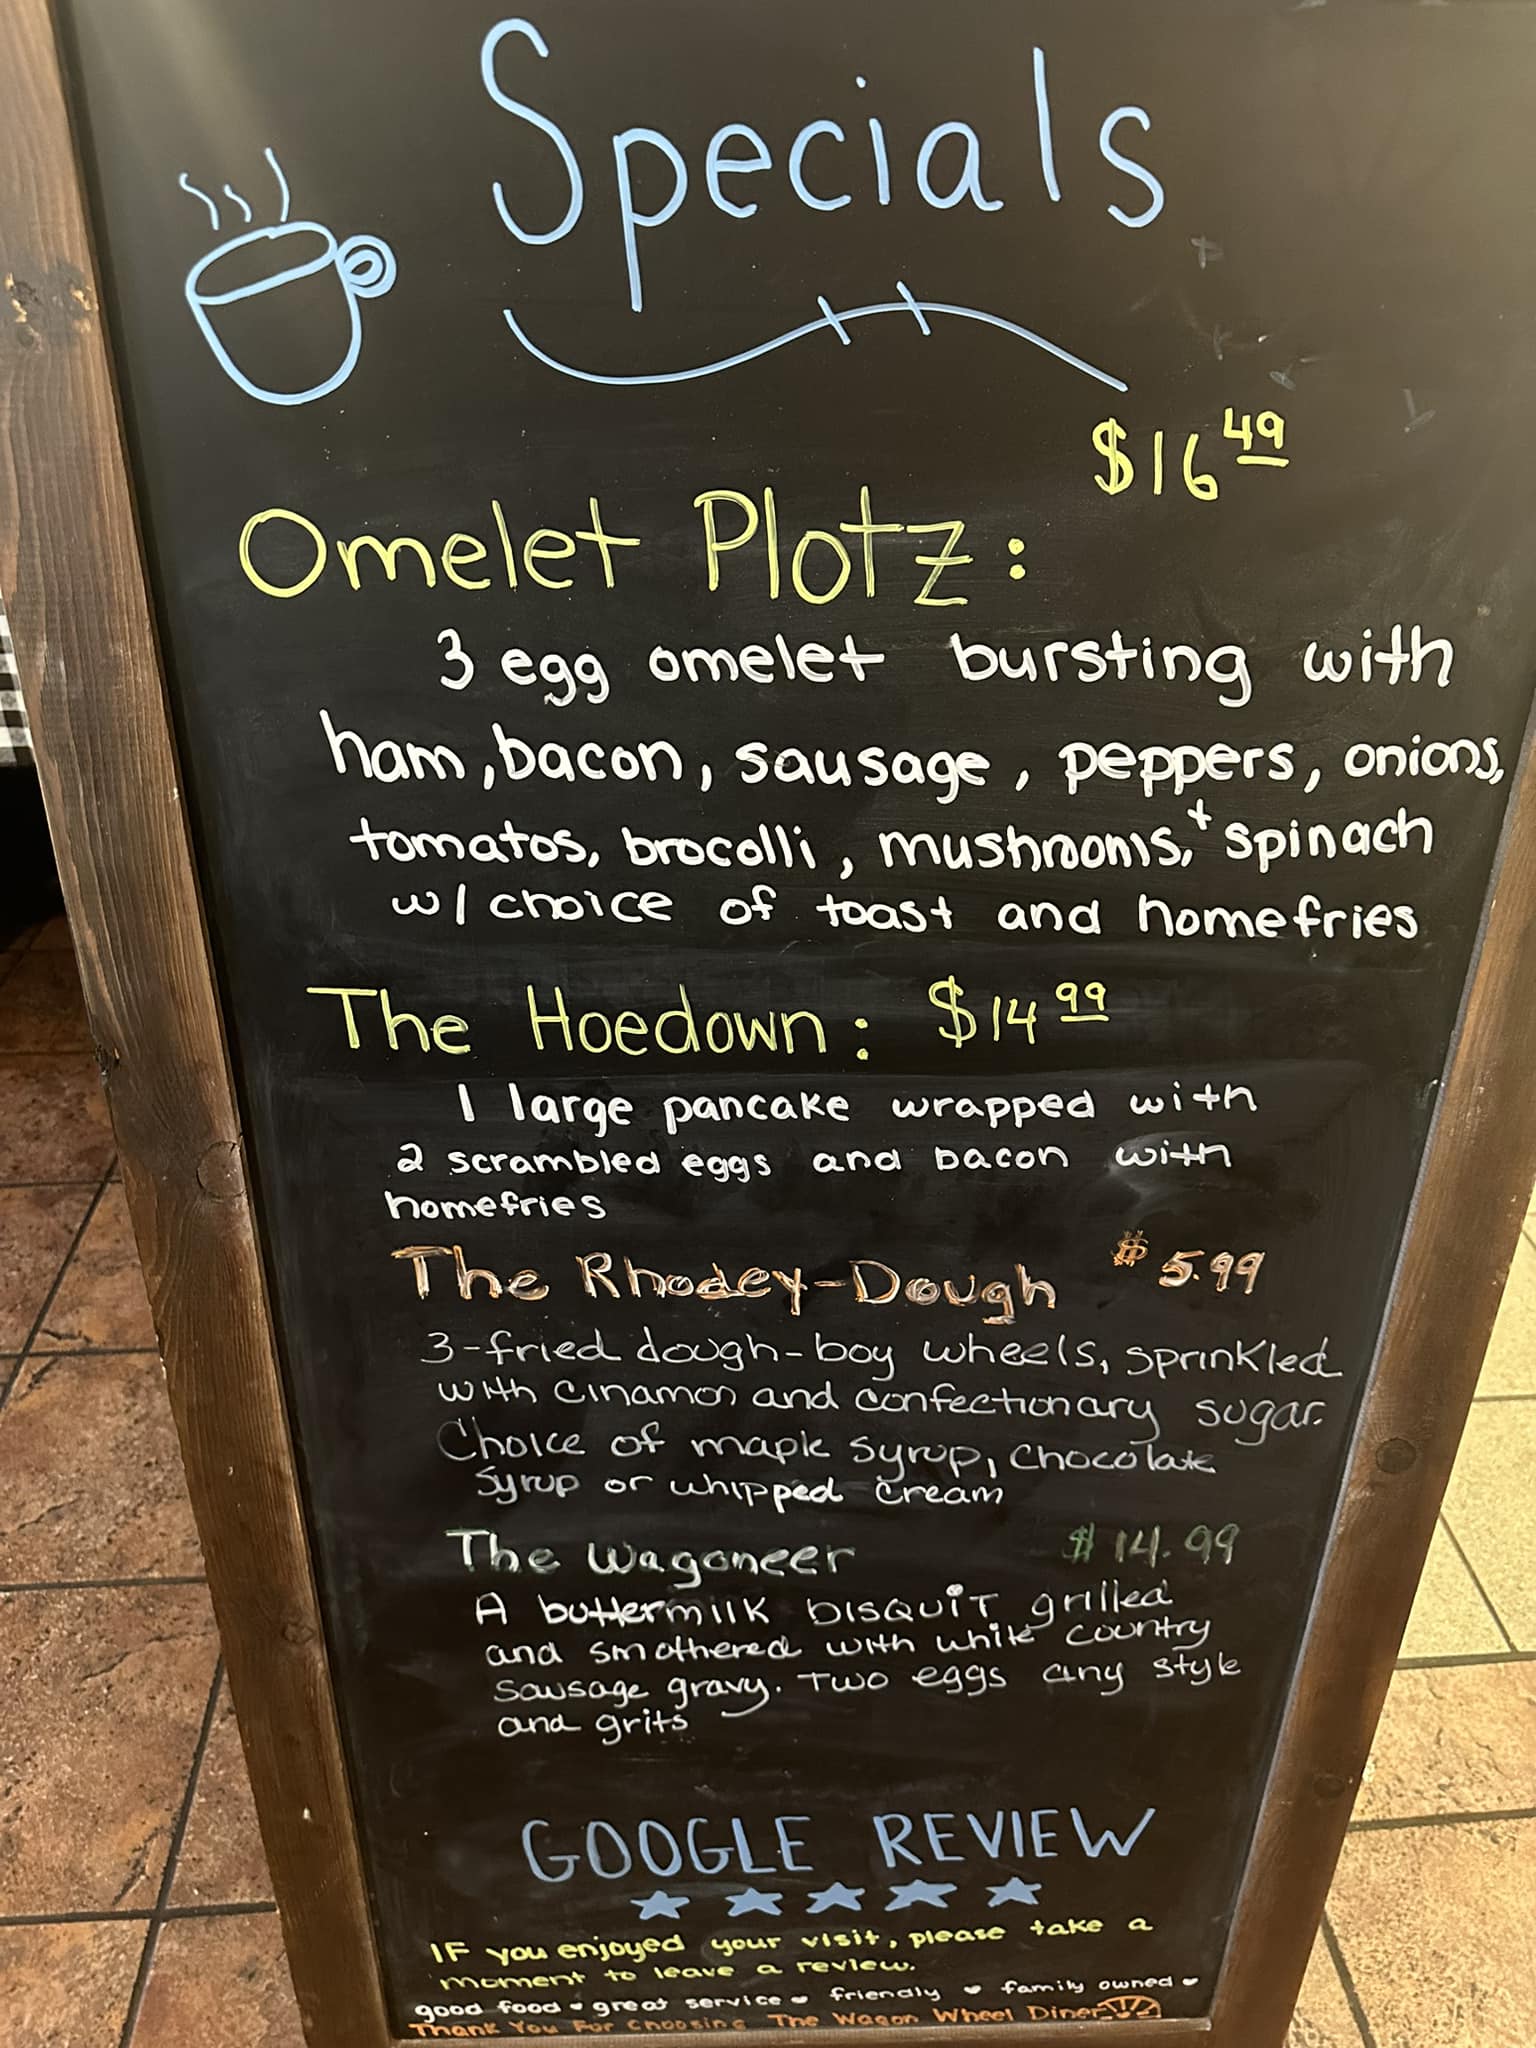 Specials
$16 49
Omelet Plotz:
3 egg omelet bursting with
ham, bacon, sausage, peppers, onions,
tomatos, brocolli, mushrooms, + spinach
w/ choice of toast and homefries
The Hoedown: $14 99
1 large pancake wrapped with
2 scrambled eggs and bacon with
homefries
The Rhodey-Dough $5.99
3-fried dough-boy wheels, sprinkled
with cinamon and confectionary sugar.
Choice of maple syrup, chocolate
syrup or whipped cream
The Wagoneer $14.99
A buttermilk BISQUIT grilled
and smothered with white country
sausage gravy. Two eggs any style
and grits
GOOGLE REVIEW
IF you enjoyed your visit, please take a
moment to leave a review.
good food great service friendly family owned
Thank You For Choosing The Wagon Wheel Diner